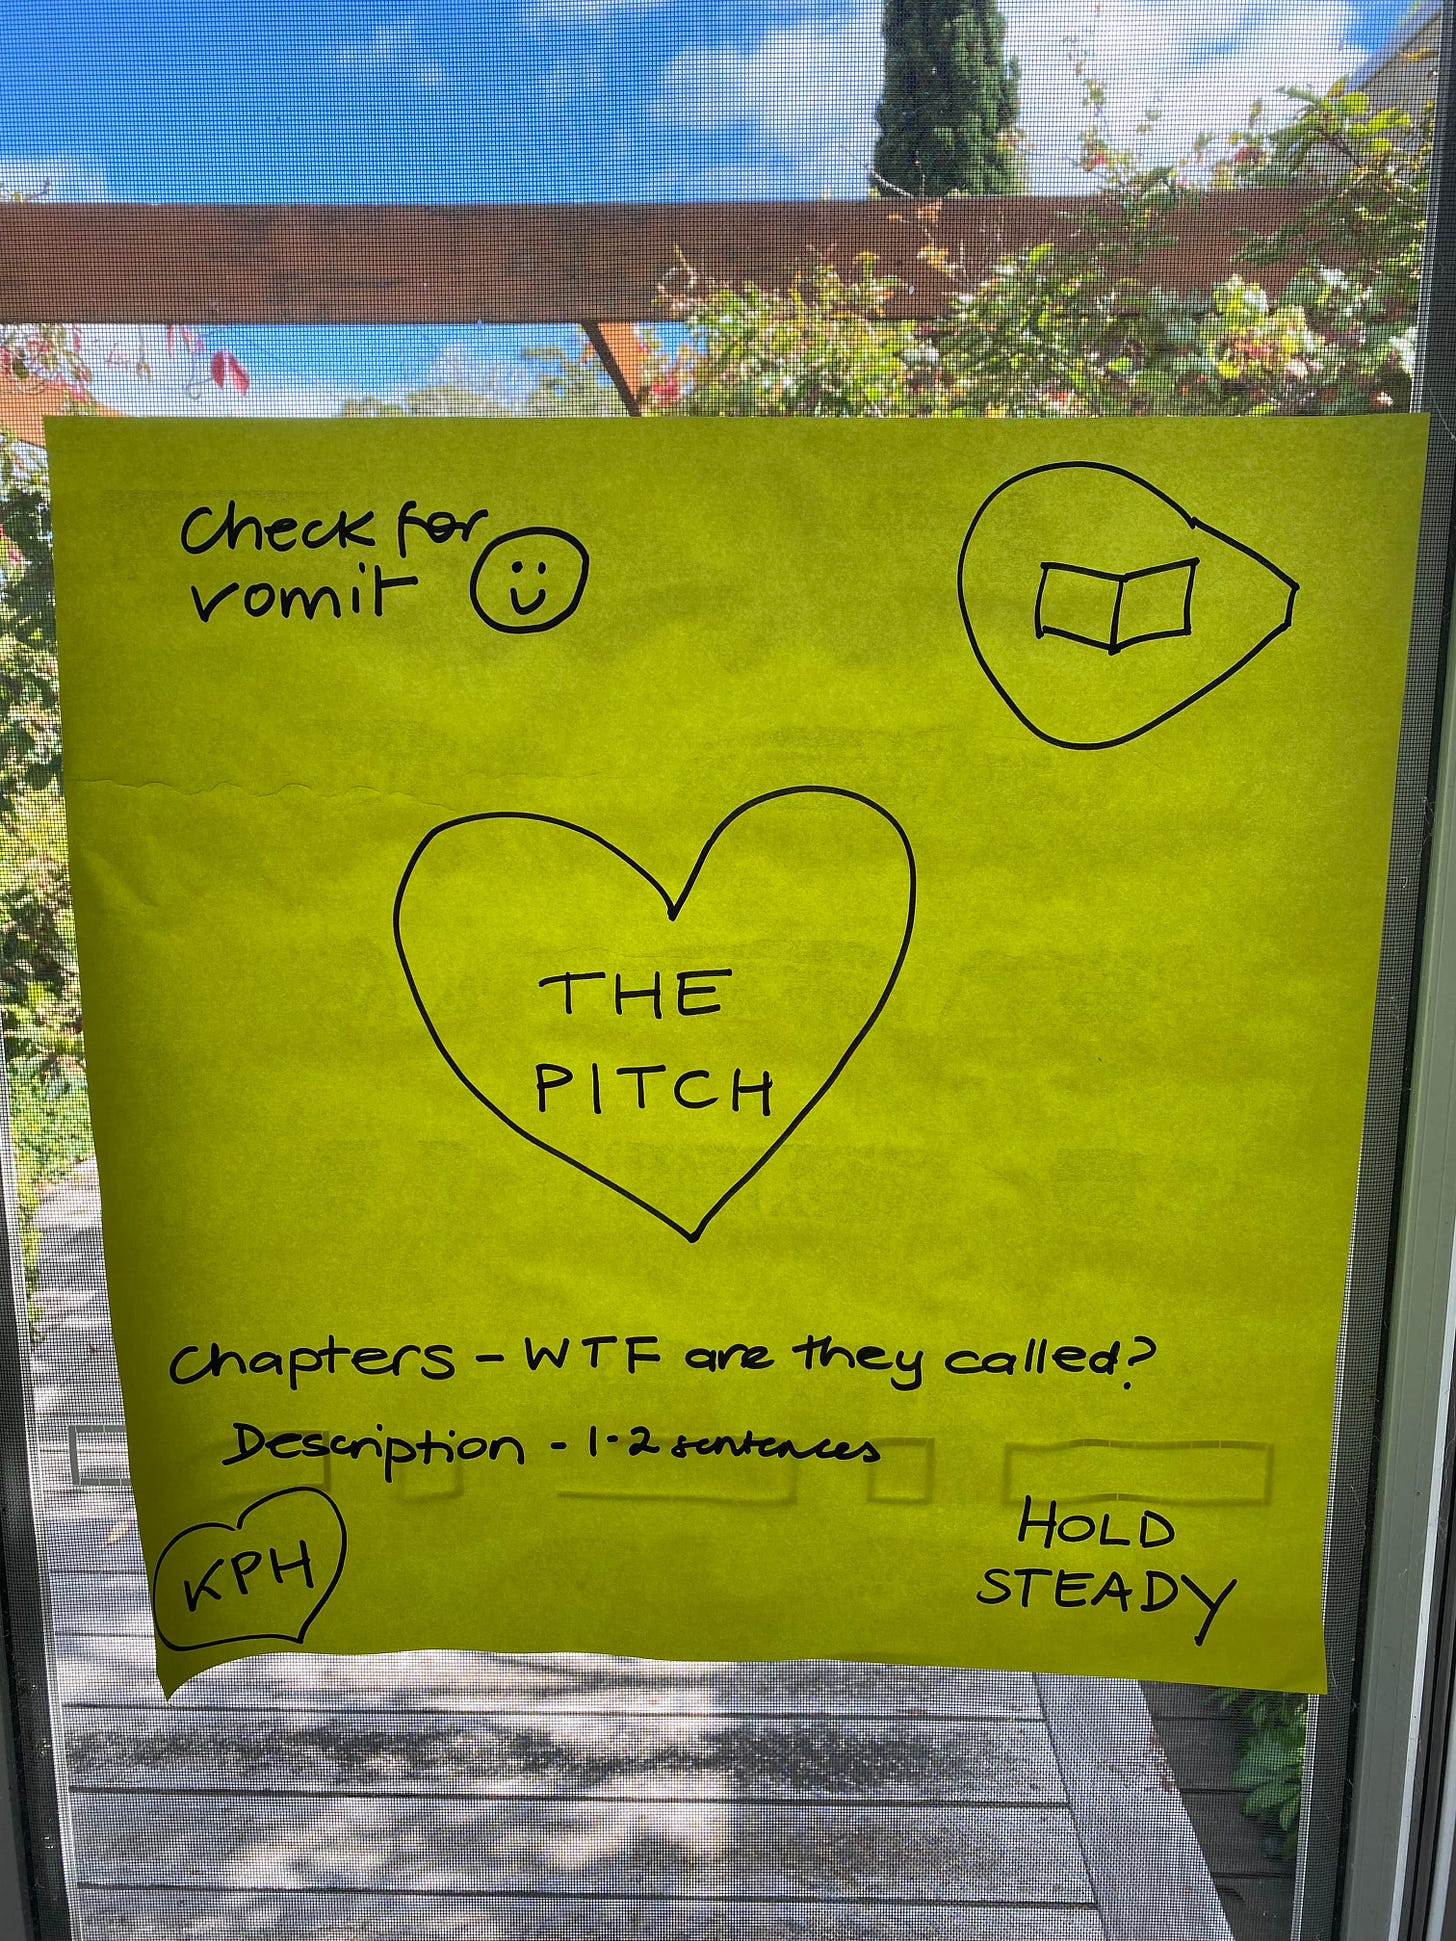 Check for
vomit
THE
PITCH
Chapters - WTF are they called?
Description - 1-2 sentences
KPH
HOLD
STEADY